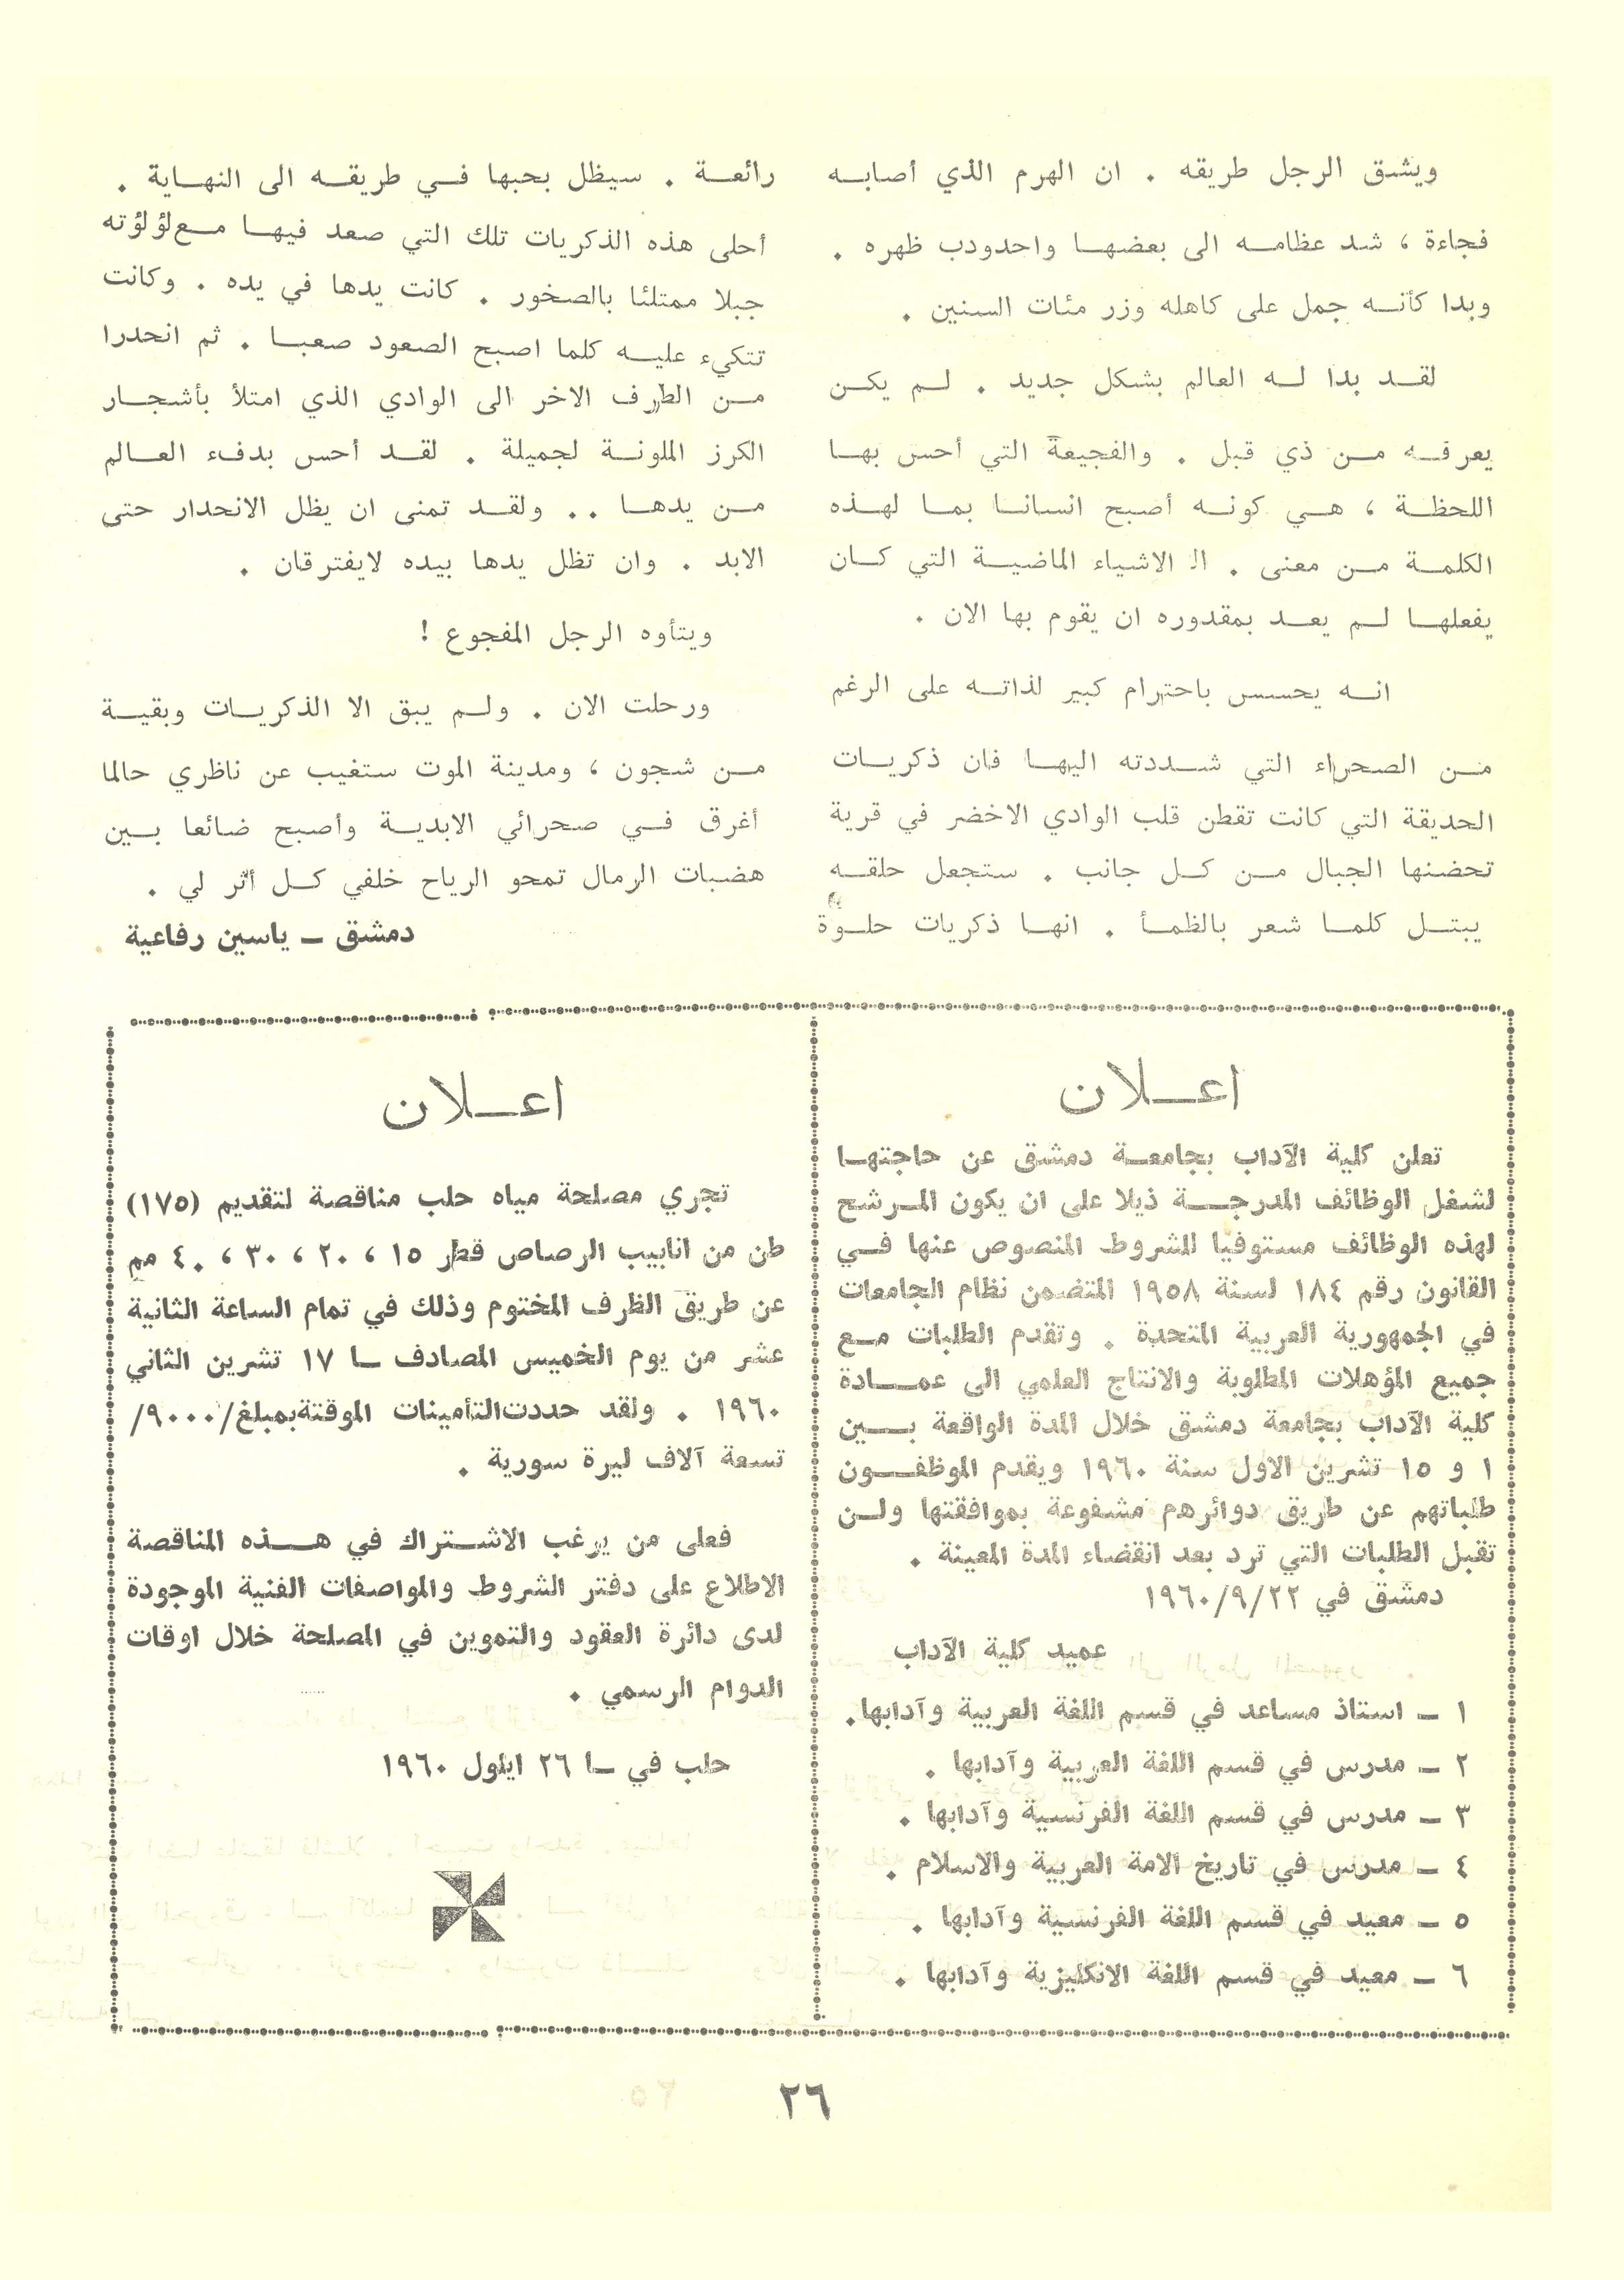 ويشق الرجل طريقه . ان الهرم الذي أصابه
فجاءة ، شد عظامه الى بعضها واحدودب ظهره .
وبدا كأنه جمل على كاهله وزر مئات السنين .
لقد بدا له العالم بشكل جديد . لم يكن
يعرفه من ذي قبل . والفجيعة التي أحس بها
اللحظة ، هي كونه أصبح انسانا بما لهذه
الكلمة من معنى . الـ الاشياء الماضية التي كان
يفعلها لم يعد بمقدوره ان يقوم بها الان .
انه يحسس باحترام كبير لذاته على الرغم
من الصحراء التي شددته اليها فان ذكريات
الحديقة التي كانت تقطن قلب الوادي الاخضر في قرية
تحضنها الجبال من كل جانب . ستجعل حلقه
يبتل كلما شعر بالظمأ . انها ذكريات حلوة
رائعة . سيظل بحبها في طريقه الى النهاية .
أحلى هذه الذكريات تلك التي صعد فيها مع لؤلؤته
جبلا ممتلئا بالصخور . كانت يدها في يده . وكانت
تتكيء عليه كلما اصبح الصعود صعبا . ثم انحدرا
من الطرف الاخر الى الوادي الذي امتلأ بأشجار
الكرز الملونة لجميلة . لقد أحس بدفء العالم
من يدها .. ولقد تمنى ان يظل الانحدار حتى
الابد . وان تظل يدها بيده لايفترقان .
ويتأوه الرجل المفجوع !
ورحلت الان . ولم يبق الا الذكريات وبقية
من شجون ، ومدينة الموت ستغيب عن ناظري حالما
أغرق في صحرائي الابدية وأصبح ضائعا بين
هضبات الرمال تمحو الرياح خلفي كل أثر لي .
دمشق ـ ياسين رفاعية
اعلان
تعلن كلية الآداب بجامعة دمشق عن حاجتها
لشغل الوظائف المدرجة ذيلا على ان يكون المرشح
لهذه الوظائف مستوفيا للشروط المنصوص عنها في
القانون رقم ١٨٤ لسنة ١٩٥٨ المتضمن نظام الجامعات
في الجمهورية العربية المتحدة . وتقدم الطلبات مع
جميع المؤهلات المطلوبة والانتاج العلمي الى عمادة
كلية الآداب بجامعة دمشق خلال المدة الواقعة بين
١ و ١٥ تشرين الاول سنة ١٩٦٠ ويقدم الموظفون
طلباتهم عن طريق دوائرهم مشفوعة بموافقتها ولن
تقبل الطلبات التي ترد بعد انقضاء المدة المعينة .
دمشق في ١٩٦٠/٩/٢٢
عميد كلية الآداب
١ ـ استاذ مساعد في قسم اللغة العربية وآدابها.
٢ ـ مدرس في قسم اللغة العربية وآدابها .
٣ ـ مدرس في قسم اللغة الفرنسية وآدابها .
٤ ـ مدرس في تاريخ الامة العربية والاسلام .
٥ ـ معيد في قسم اللغة الفرنسية وآدابها .
٦ ـ معيد في قسم اللغة الانكليزية وآدابها .
اعلان
تجري مصلحة مياه حلب مناقصة لتقديم (١٧٥)
طن من انابيب الرصاص قطر ١٥ ، ٢٠ ، ٣٠ ، ٤٠ مم
عن طريق الظرف المختوم وذلك في تمام الساعة الثانية
عشر من يوم الخميس المصادف ـا ١٧ تشرين الثاني
١٩٦٠ . ولقد حددت التأمينات الموقتة بمبلغ /٩٠٠٠/
تسعة آلاف ليرة سورية .
فعلى من يرغب الاشتراك في هذه المناقصة
الاطلاع على دفتر الشروط والمواصفات الفنية الموجودة
لدى دائرة العقود والتموين في المصلحة خلال اوقات
الدوام الرسمي .
حلب في ـا ٢٦ ايلول ١٩٦٠
٢٦